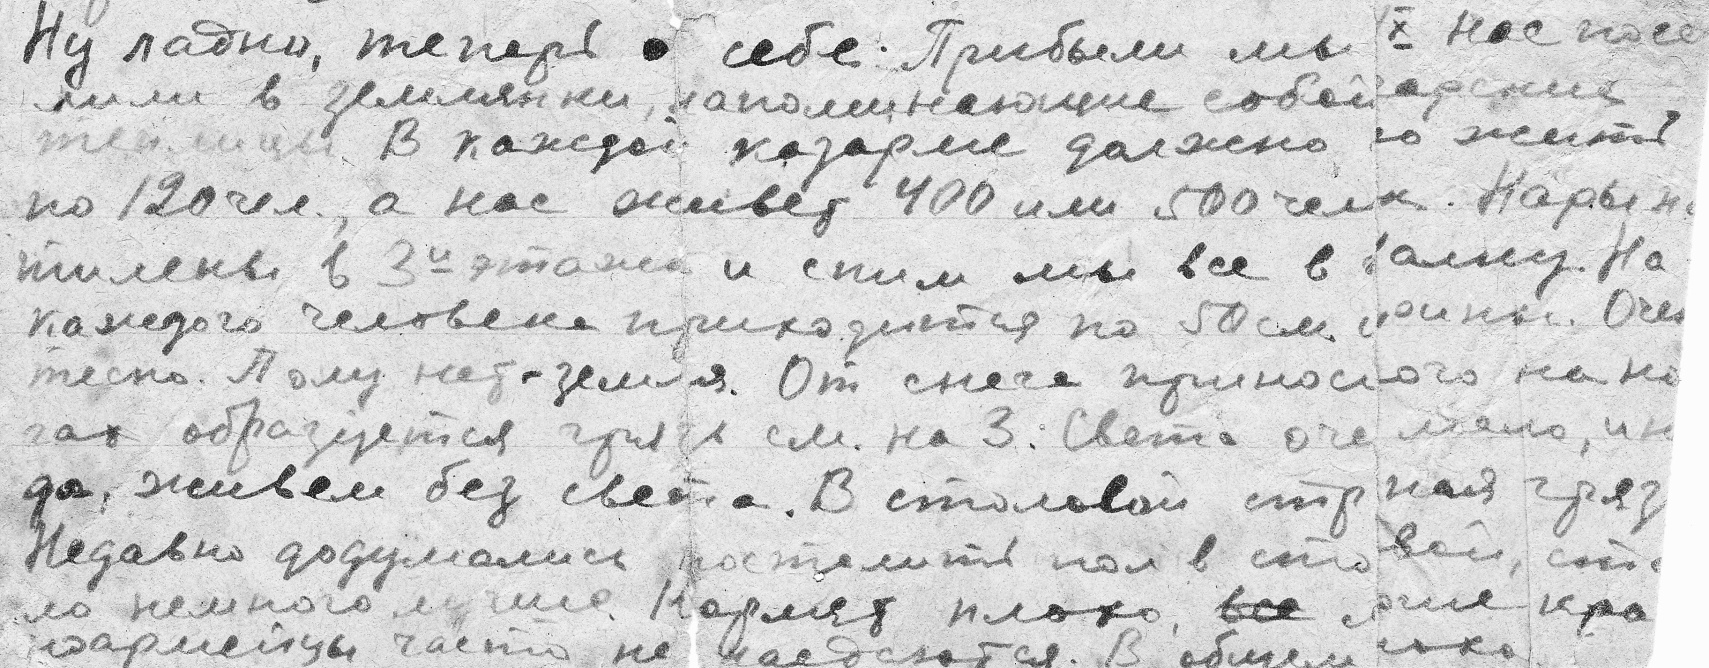 Ну ладно, теперь о себе. Прибыли мы X Нас посе
лили в землянки, напоминающие собой
теплицы В каждой казарме должно жить
по 120 чел., а нас живет 400 или 500 челк. Нары на
стилены в 3и этажа и спим мы все в На
каждого человека приходится по 50 см. Очен
тесно. Полу нет - земля. От снега приносимого на но
гах образуется грязь см. на 3. Света оче мало, ин
да, живем без света. В столовой грязь
Недавно додумались постелить пол в ста
ло немного лучше. Кормят плохо, кра
ноармейцы часто не наедаются. В общем